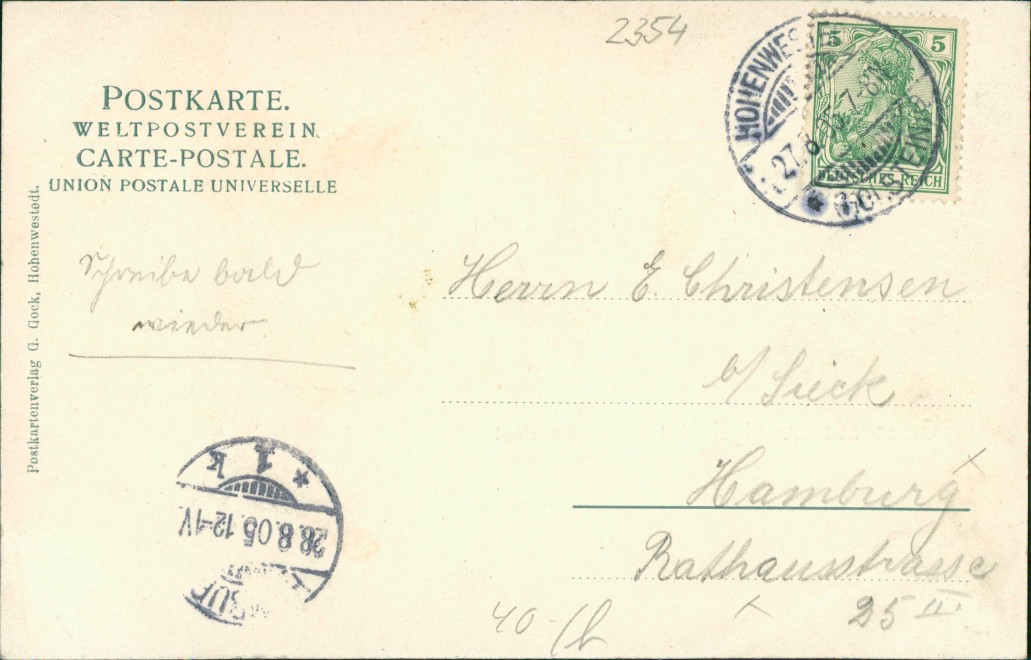 2354
POSTKARTE.
WELTPOSTVEREIN.
CARTE-POSTALE.
UNION POSTALE UNIVERSELLE
5 5
DEUTSCHES REICH
HOHENWESTEDT
27.8. 7-8N
HOLSTEIN
Postkartenverlag G. Gock, Hohenwestedt.
Schreibe bald
wieder
Herrn E. Christensen
b/ Sieck
Hamburg
Rathausstrasse
25 II.
* 1 k
28.8.05.12-1V
40-